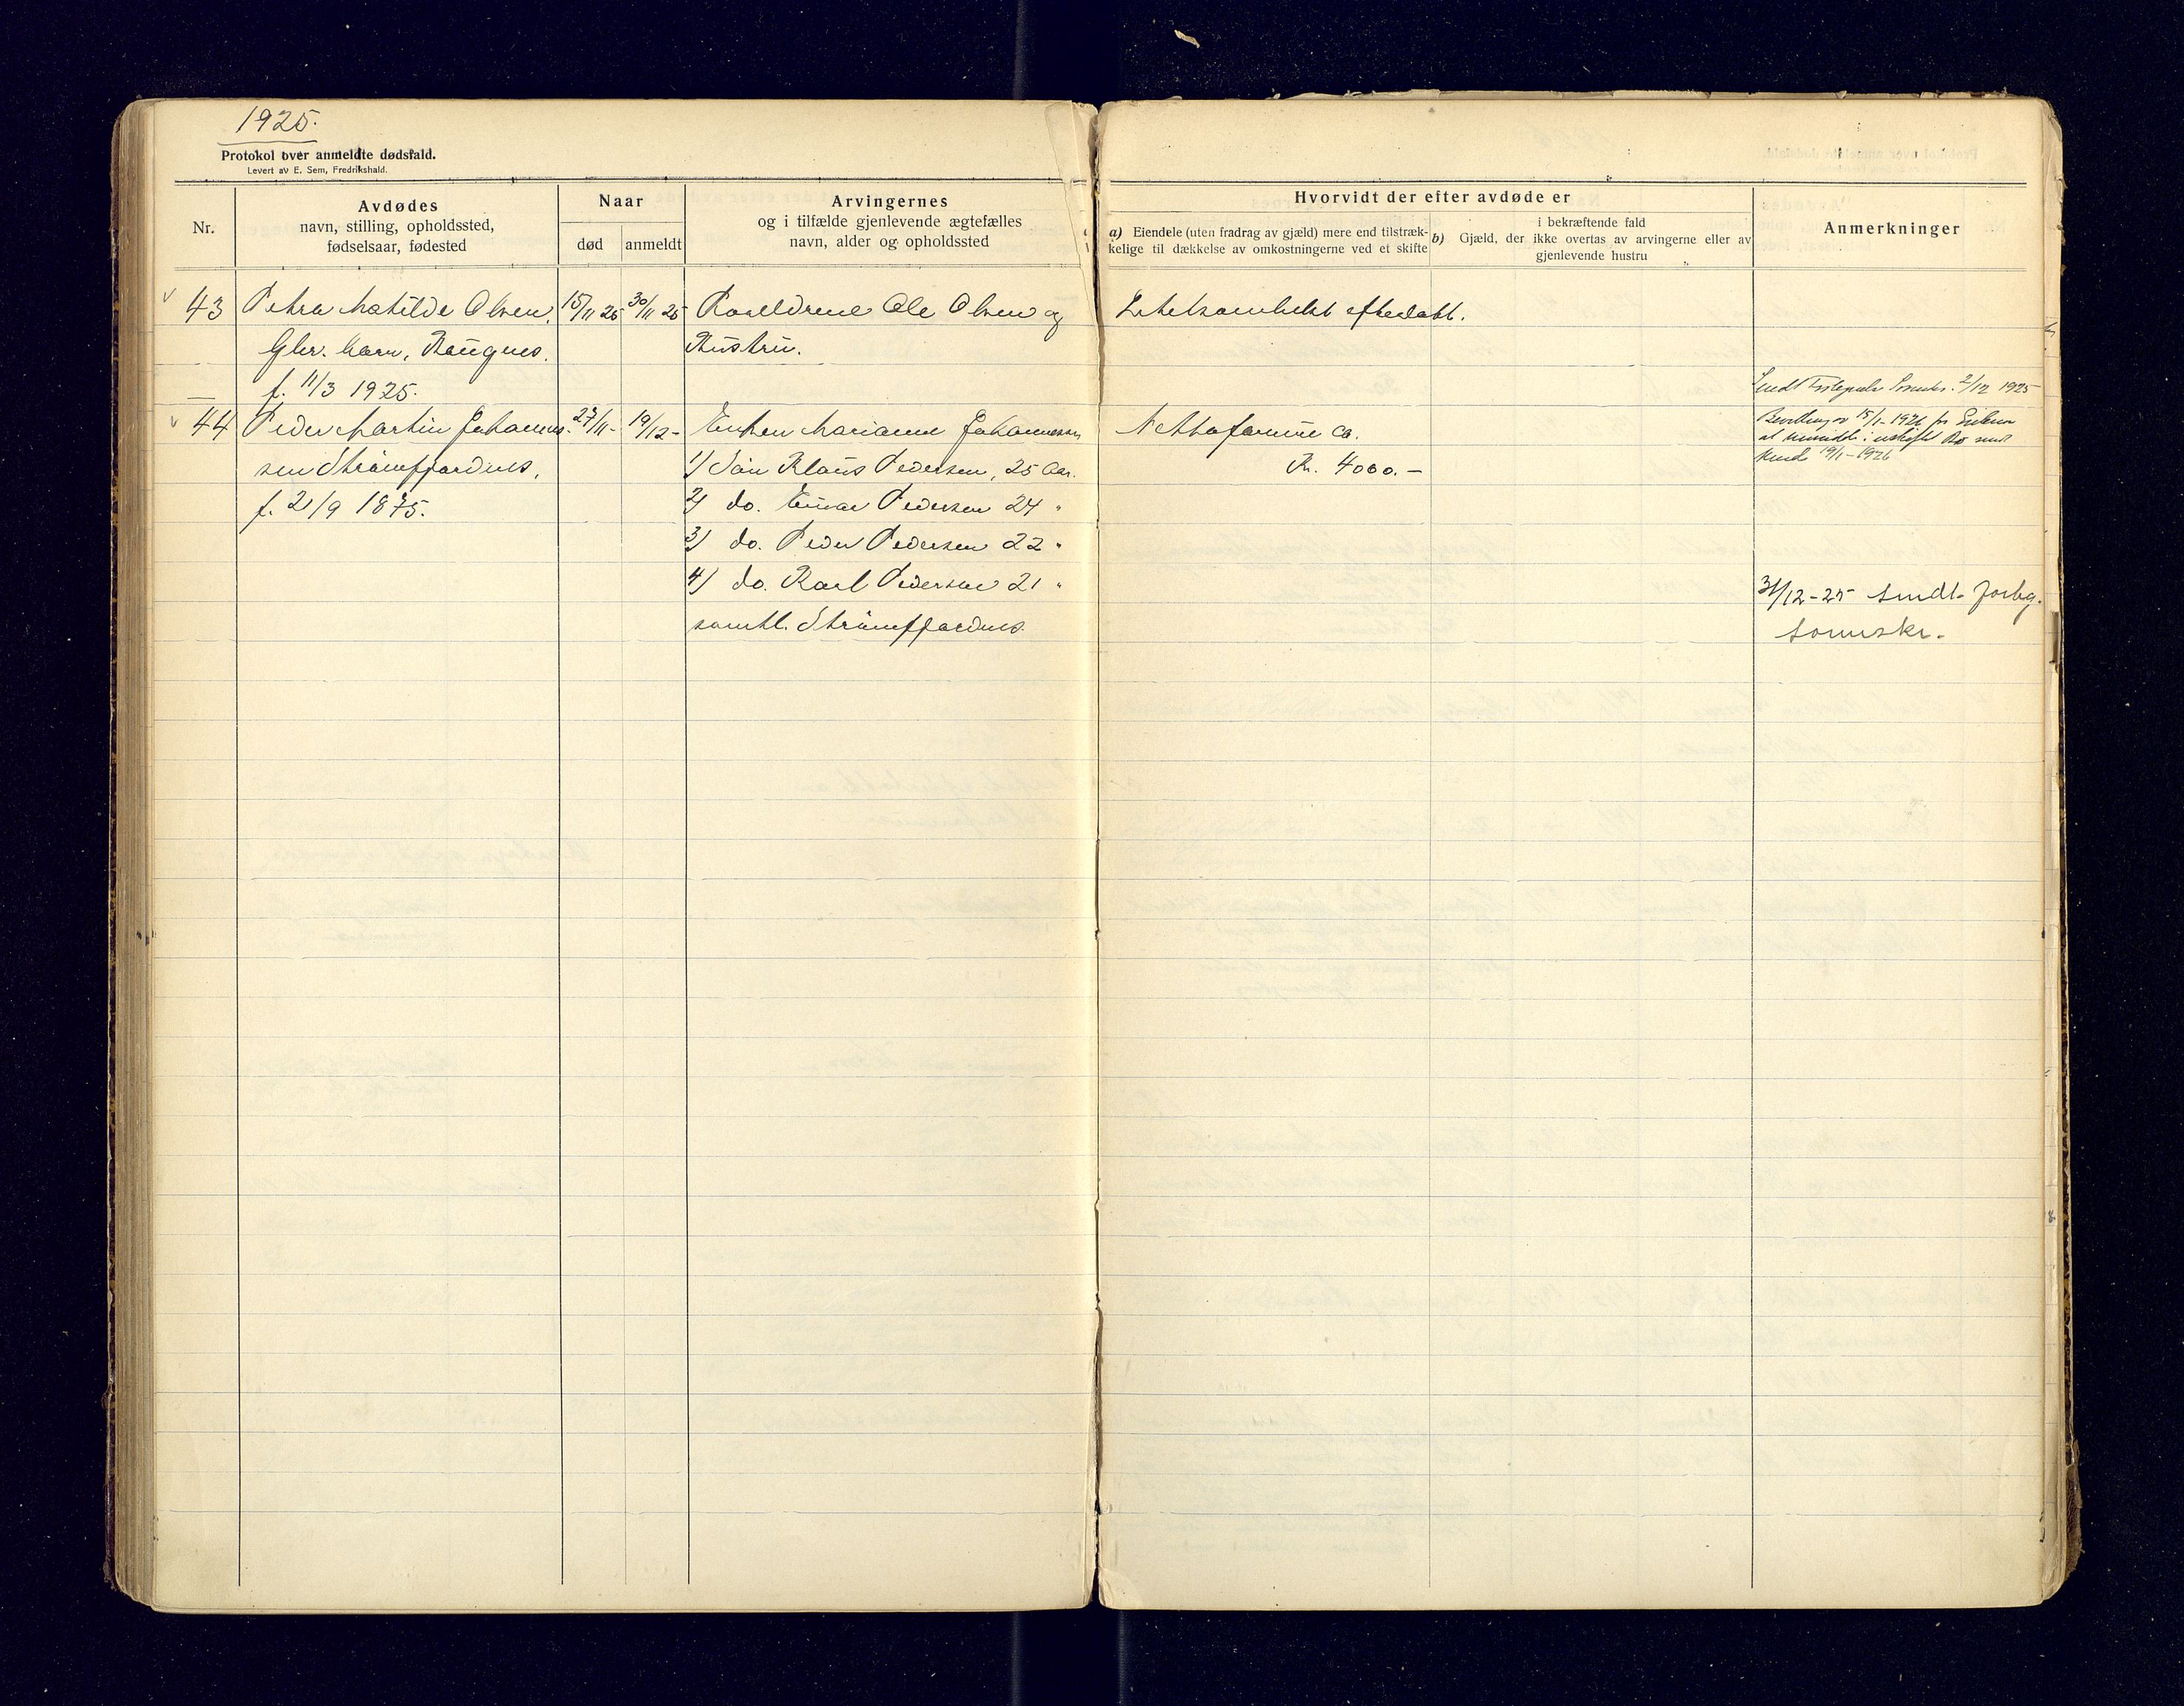 1925.
Protokol over anmeldte dødsfald.
Levert av E. Sem, Fredrikshald.
Nr.
Avdødes
navn, stilling, opholdssted,
fødselsaar, fødested
Naar
død
anmeldt
Arvingernes
og i tilfælde gjenlevende ægtefælles
navn, alder og opholdssted
Hvorvidt der efter avdøde er
a) Eiendele (uten fradrag av gjæld) mere end tilstræk-
kelige til dækkelse av omkostningerne ved et skifte
i bekræftende fald
b) Gjæld, der ikke overtas av arvingerne eller av
gjenlevende hustru
Anmerkninger
43 Petra Matilde Olsen, 15/11 25 30/11 25 Foreldrene Ole Olsen og Intetsomhelst efterlatt.
Gbr. barn, Haugnes. Hustru.
f. 11/3 1925.
Sendt 2/12 1925
44 Peder Martin Johannes- 27/11 - 19/12 - Enken Marianne Johannessen Nettoformue ca.
15/1-1926 for Enken
sen Strømfjordnes, 1) Søn Klaus Pedersen, 25 Aar. Kr. 4000.-
at i uskiftet Bo
19/1-1926
f. 21/9 1875. 2) do. Einar Pedersen 24 "
3) do. Peder Pedersen 22 "
4) do. Karl Pedersen 21 "
31/12-25 Sendt
samtl. Strømfjordnes.